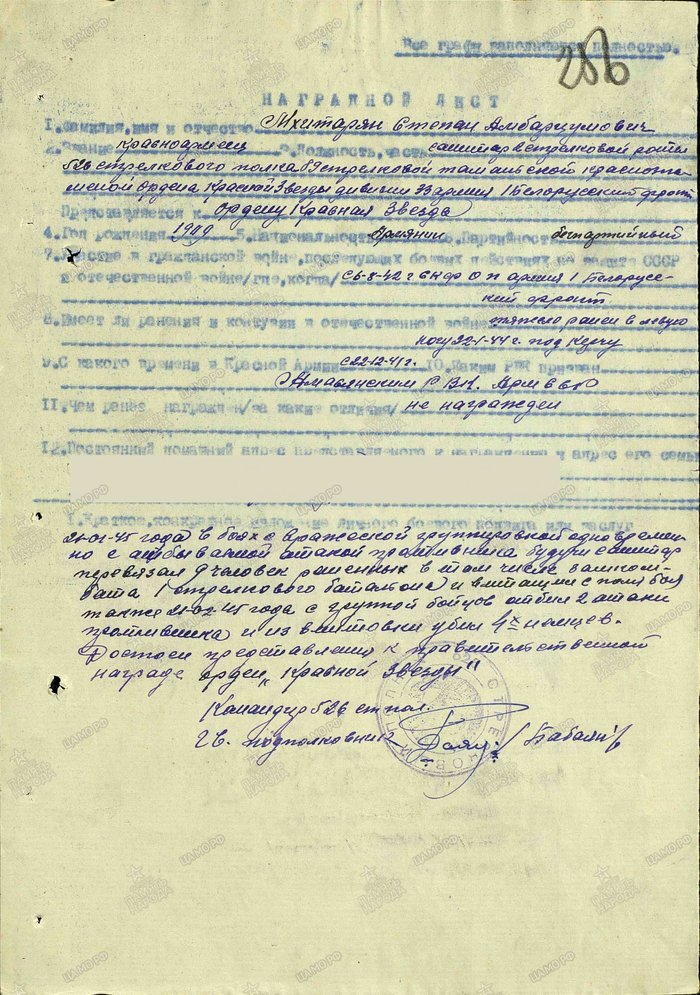 Все графы заполняются полностью.
286
НАГРАДНОЙ ЛИСТ
1. Фамилия, имя и отчество Мхитарян Степан Амбарцумович
2. Звание красноармеец 3. Должность, часть санитар стрелковой роты
526 стрелкового полка 89 стрелковой Таманьской краснозна-
менной ордена Красной Звезды дивизии 33 армия 1 Белорусский фронт
Представляется к Ордену Красная Звезда
4. Год рождения 1909 5. Национальность Армянин 6. Партийность беспартийный
7. Участие в гражданской войне, последующих боевых действиях по защите СССР
и отечественной войне /где, когда/ с 6-8-42 г СКФ ОП армия 1 Белорус-
ский фронт
8. Имеет ли ранения и контузии в отечественной войне тяжело ранен в левую
ногу 22-1-44 г. под Керчу
9. С какого времени в Красной Армии с 22-12-41 г. 10. Каким РВК призван
РВК. Арм
11. Чем ранее награжден /за какие отличия/ не награжден
12. Постоянный домашний адрес представляемого к награждению и адрес его семьи
1. Краткое, конкретное изложение личного боевого подвига или заслуг
года в боях с вражеской группировкой одновремен-
но с атакой противника будучи санитар
перевязал 9 человек раненных в том числе
бата 1 стрелкового батальона и с поля боя
также 21-02-45 года с группой бойцов отбил 2 атаки
противника и из винтовки убил 4х немцев.
Достоен представлению к правительственной
награде орден „Красной Звезды"
Командир 526 стр пол.
Гв. подполковник / Бабаян /
ЦАМО РФ
ПАМЯТЬ НАРОДА